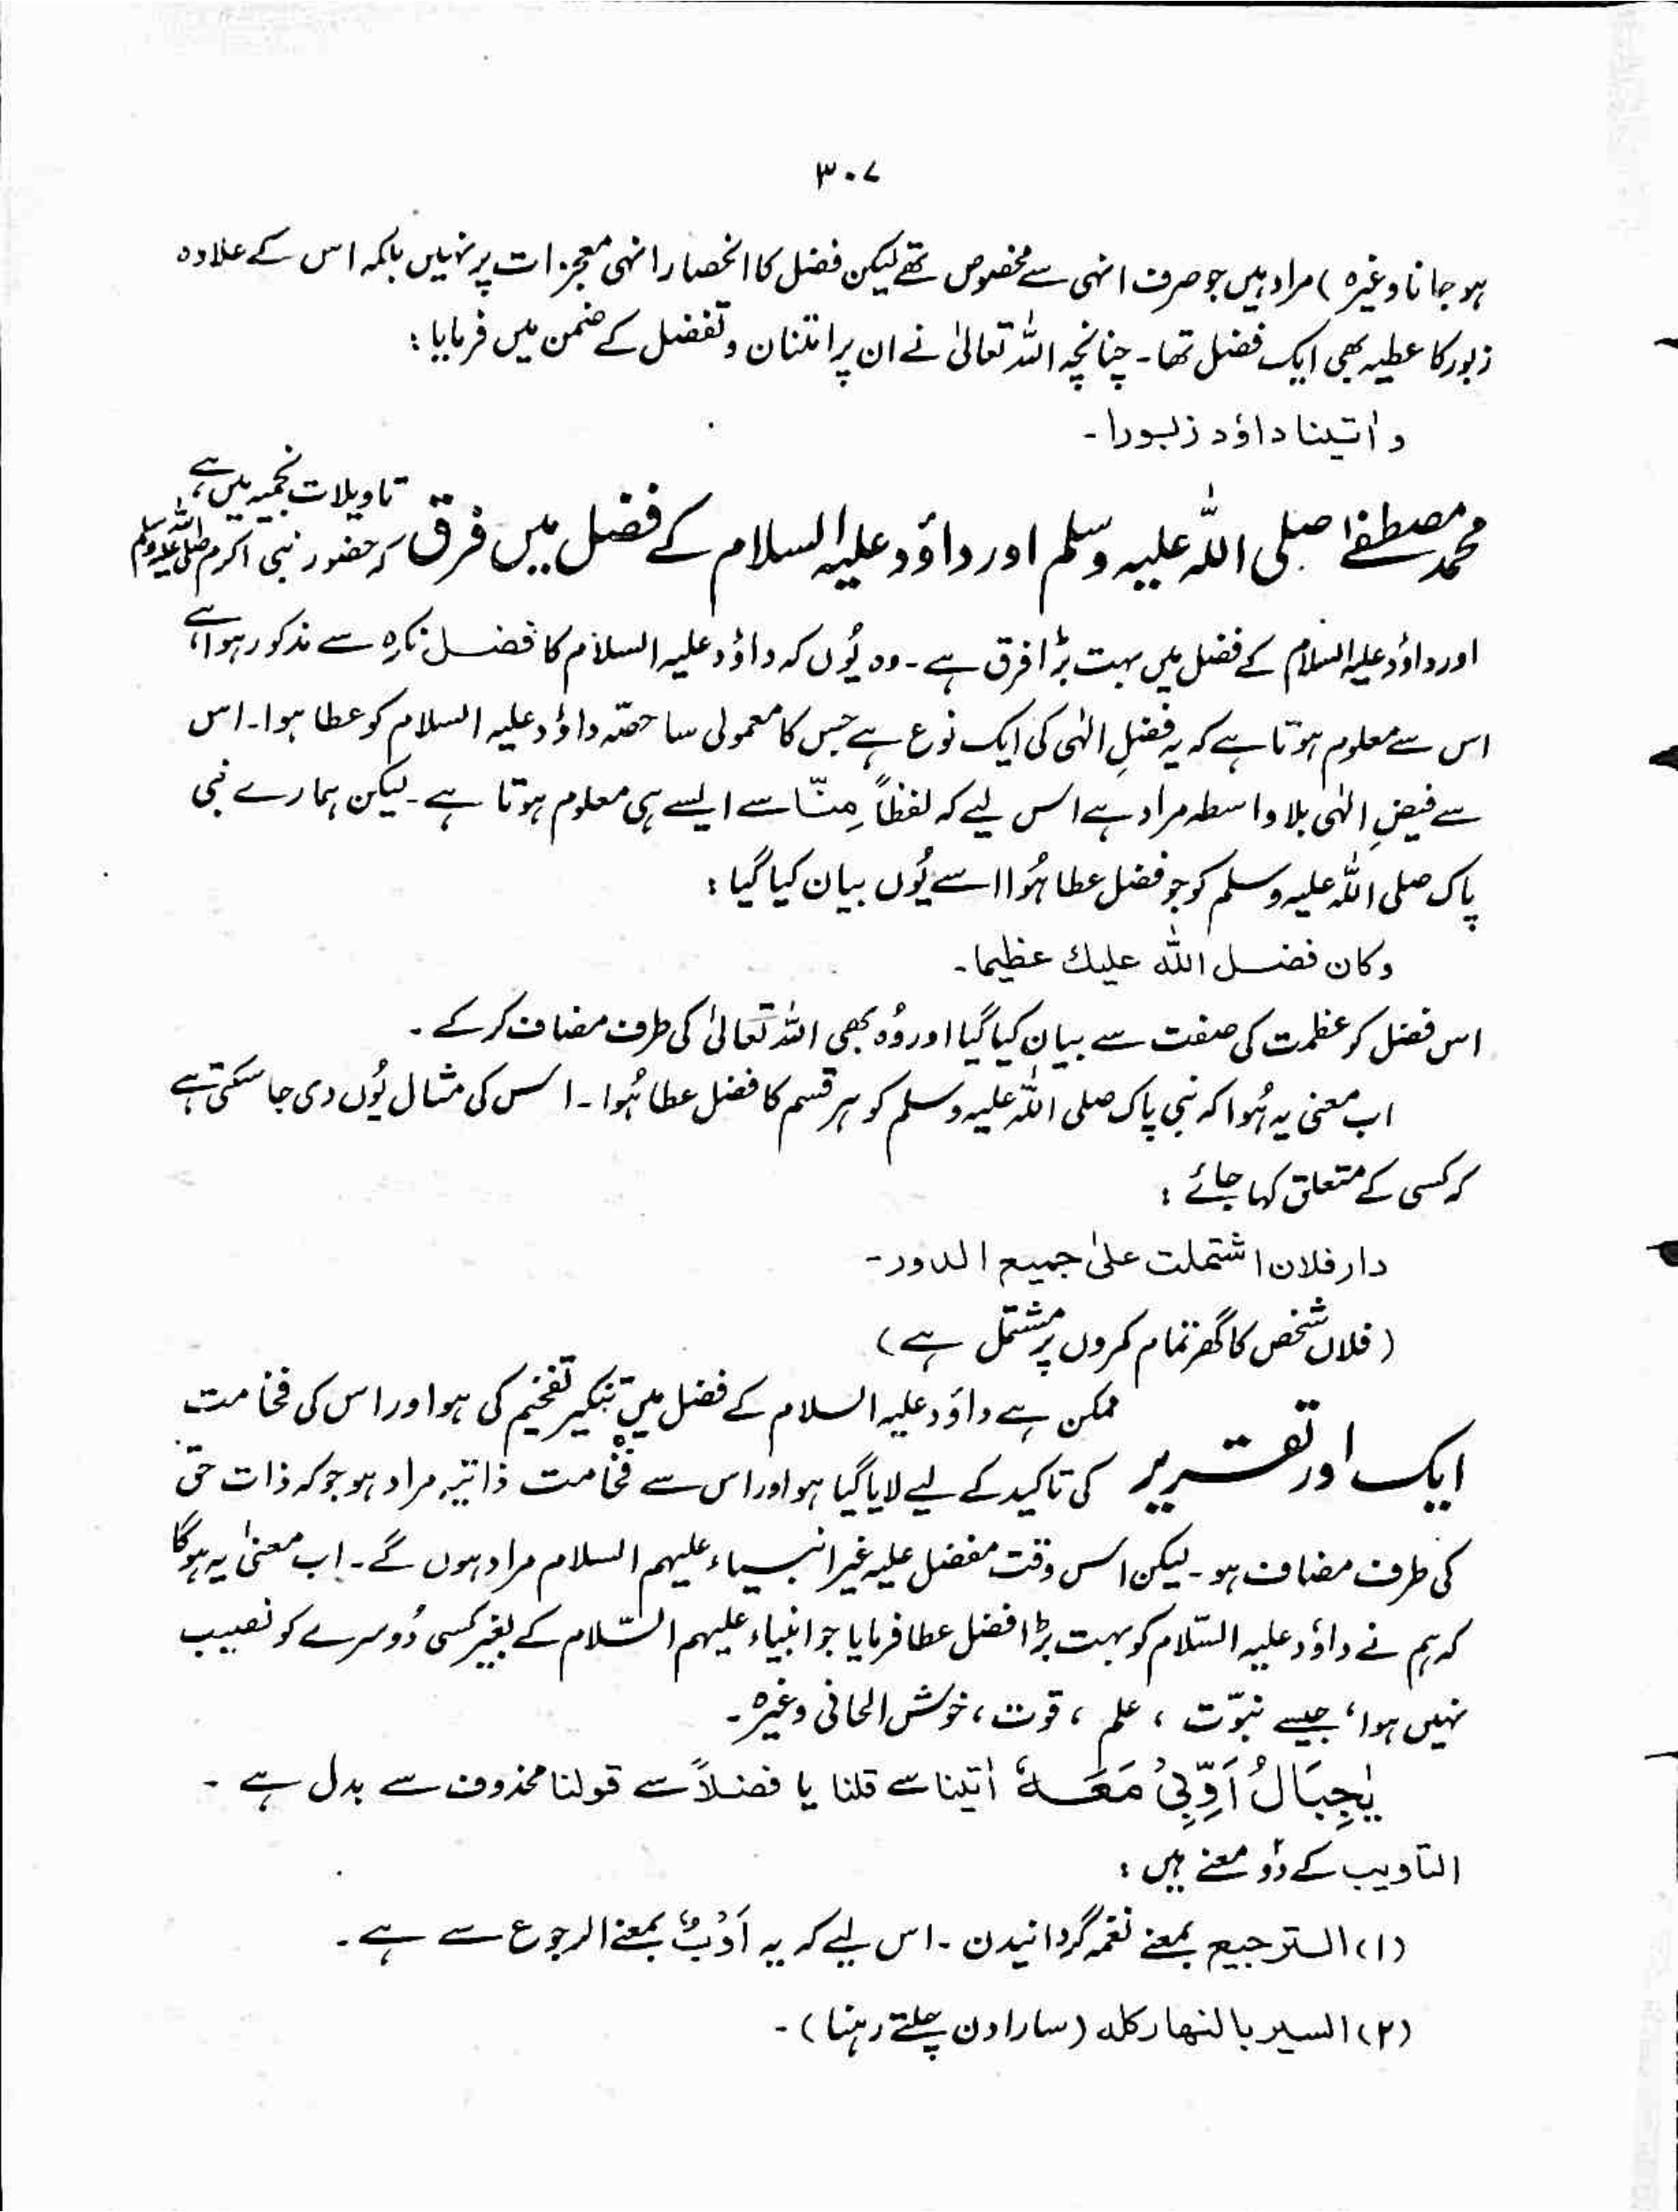 ۳۰۷
ہو جانا وغیرہ) مراد ہیں جو صرف انہی سے مخصوص تھے لیکن فضل کا انحصار انہی معجزات پر نہیں بلکہ اس کے علاوہ
زبور کا عطیہ بھی ایک فضل تھا۔ چنانچہ اللہ تعالیٰ نے ان پر امتنان و تفضل کے ضمن میں فرمایا :
واٰتینا داؤد زبورا۔
محمد مصطفےٰ صلی اللہ علیہ وسلم اور داؤد علیہ السلام کے فضل میں فرق تاویلات نجمیہ میں ہے
کہ حضور نبی اکرم صلی اللہ علیہ وسلم
اور داؤد علیہ السلام کے فضل میں بہت بڑا فرق ہے۔ وہ یُوں کہ داؤد علیہ السلام کا فضل نکرہ سے مذکور ہوا ہے،
اس سے معلوم ہوتا ہے کہ یہ فضلِ الٰہی کی ایک نوع ہے جس کا معمولی سا حصّہ داؤد علیہ السلام کو عطا ہوا۔ اس
سے فیضِ الٰہی بلا واسطہ مراد ہے اس لیے کہ لفظاً مِنّا سے ایسے ہی معلوم ہوتا ہے۔ لیکن ہمارے نبی
پاک صلی اللہ علیہ وسلم کو جو فضل عطا ہُوا اسے یُوں بیان کیا گیا :
وکان فضل اللہ علیك عظیما۔
اس فضل کو عظمت کی صفت سے بیان کیا گیا اور وُہ بھی اللہ تعالیٰ کی طرف مضاف کر کے ۔
اب معنی یہ ہُوا کہ نبی پاک صلی اللہ علیہ وسلم کو ہر قسم کا فضل عطا ہُوا۔ اس کی مثال یُوں دی جا سکتی ہے
کہ کسی کے متعلق کہا جائے :
دار فلان اشتملت علیٰ جمیع الدور۔
(فلاں شخص کا گھر تمام کمروں پر مشتمل ہے)
ایک اور تقریر ممکن ہے داؤد علیہ السلام کے فضل میں تنکیر تفخیم کی ہو اور اس کی فخامت
کی تاکید کے لیے لایا گیا ہو اور اس سے فخامت ذاتیہ مراد ہو جو کہ ذات حق
کی طرف مضاف ہو۔ لیکن اس وقت مفضل علیہ غیر انبیاء علیہم السلام مراد ہوں گے۔ اب معنیٰ یہ ہو گا
کہ ہم نے داؤد علیہ السّلام کو بہت بڑا فضل عطا فرمایا جو انبیاء علیہم السّلام کے بغیر کسی دُوسرے کو نصیب
نہیں ہوا، جیسے نبوّت ، علم ، قوت ، خوش الحانی وغیرہ۔
یٰجِبَالُ اَوِّبِیْ مَعَہٗ اٰتینا سے قلنا یا فضلاً سے قولنا محذوف سے بدل ہے ۔
التأویب کے دُو معنے ہیں :
(۱) الترجیع بمعنے نغمہ گردانیدن ۔ اس لیے کہ یہ اَوْبٌ بمعنے الرجوع سے ہے ۔
(۲) السیر بالنهار کله (سارا دن چلتے رہنا) ۔